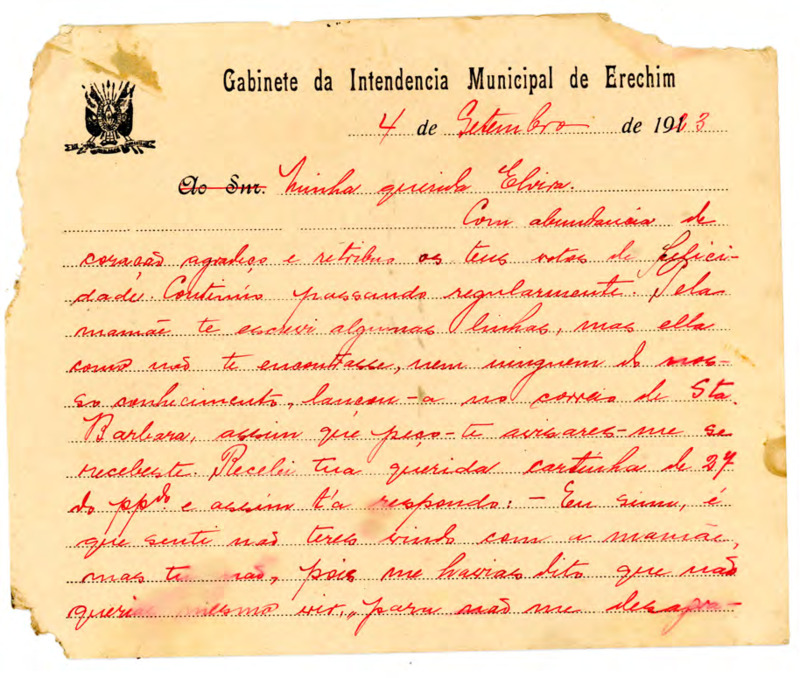 Gabinete da Intendencia Municipal de Erechim
4 de Setembro de 1923
Ao Snr. Minha querida Elvira.
Com abundancia de
coração agradeço e retribuo os teus votos de felici-
dade. Continúo passando regularmente. Pela
mamãe te escrevi algumas linhas, mas ella
como não te encontrasse, nem ninguem do nos-
so conhecimento, lançou-a no correio de Sta.
Barbara, assim que peço-te avisares-me se
recebeste. Recebi tua querida cartinha de 27
do ppdo e assim t'a respondo: - Eu sim, é
que senti não teres vindo com a mamãe,
mas tu não, pois me havias dito que não
querias mesmo vir, para não me desagra-